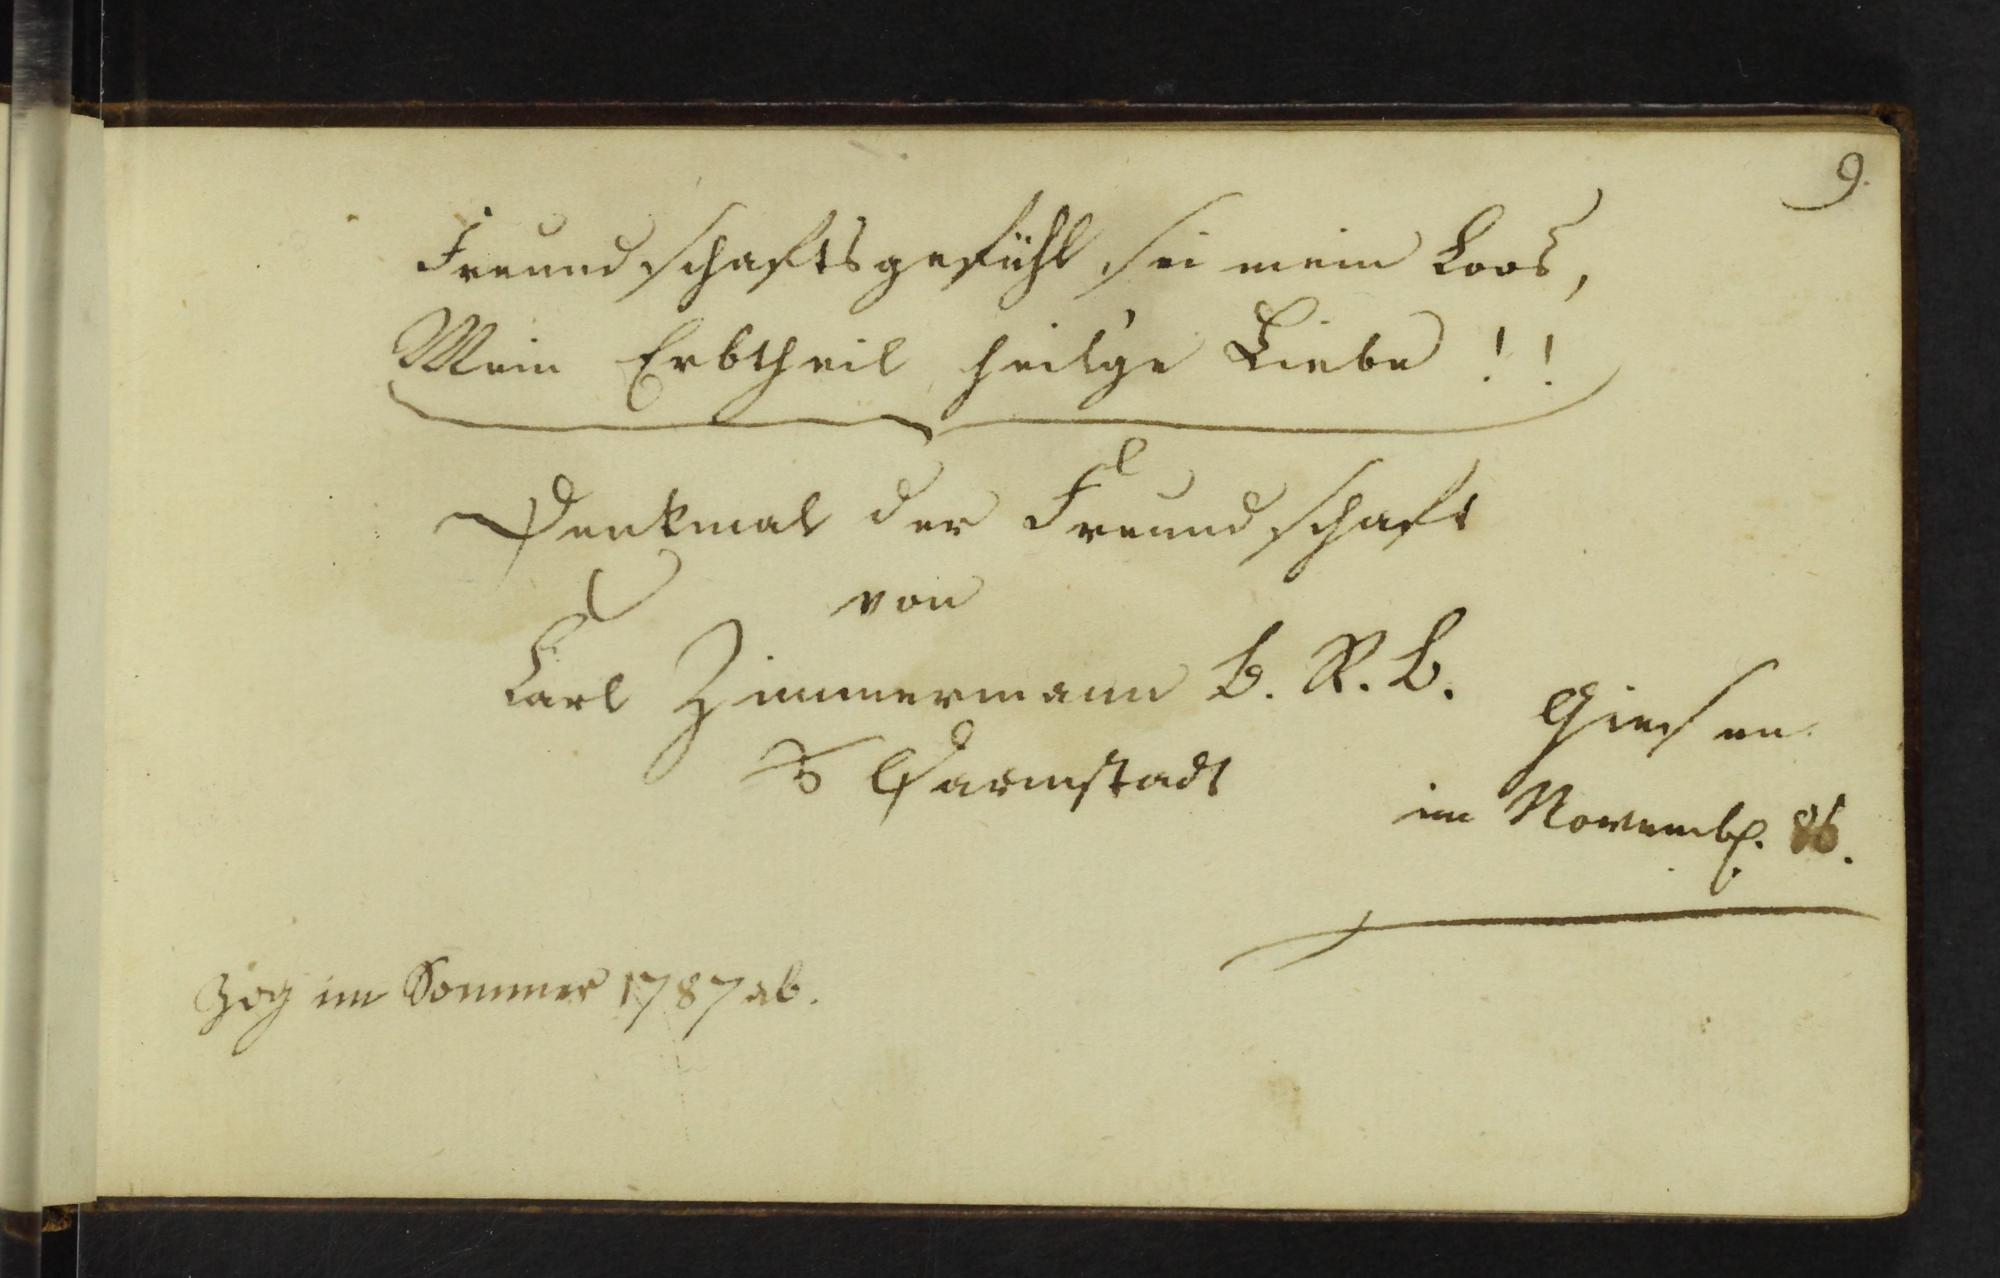 9.
Freundschaftsgefühl sei mein Loos,
Mein Erbtheil heil'ge Liebe!!
Denkmal der Freundschaft
von
Carl Zimmermann B. R. B.
Darmstadt
Giesen
im Novemb. 86.
Zog im Sommer 1787 ab.